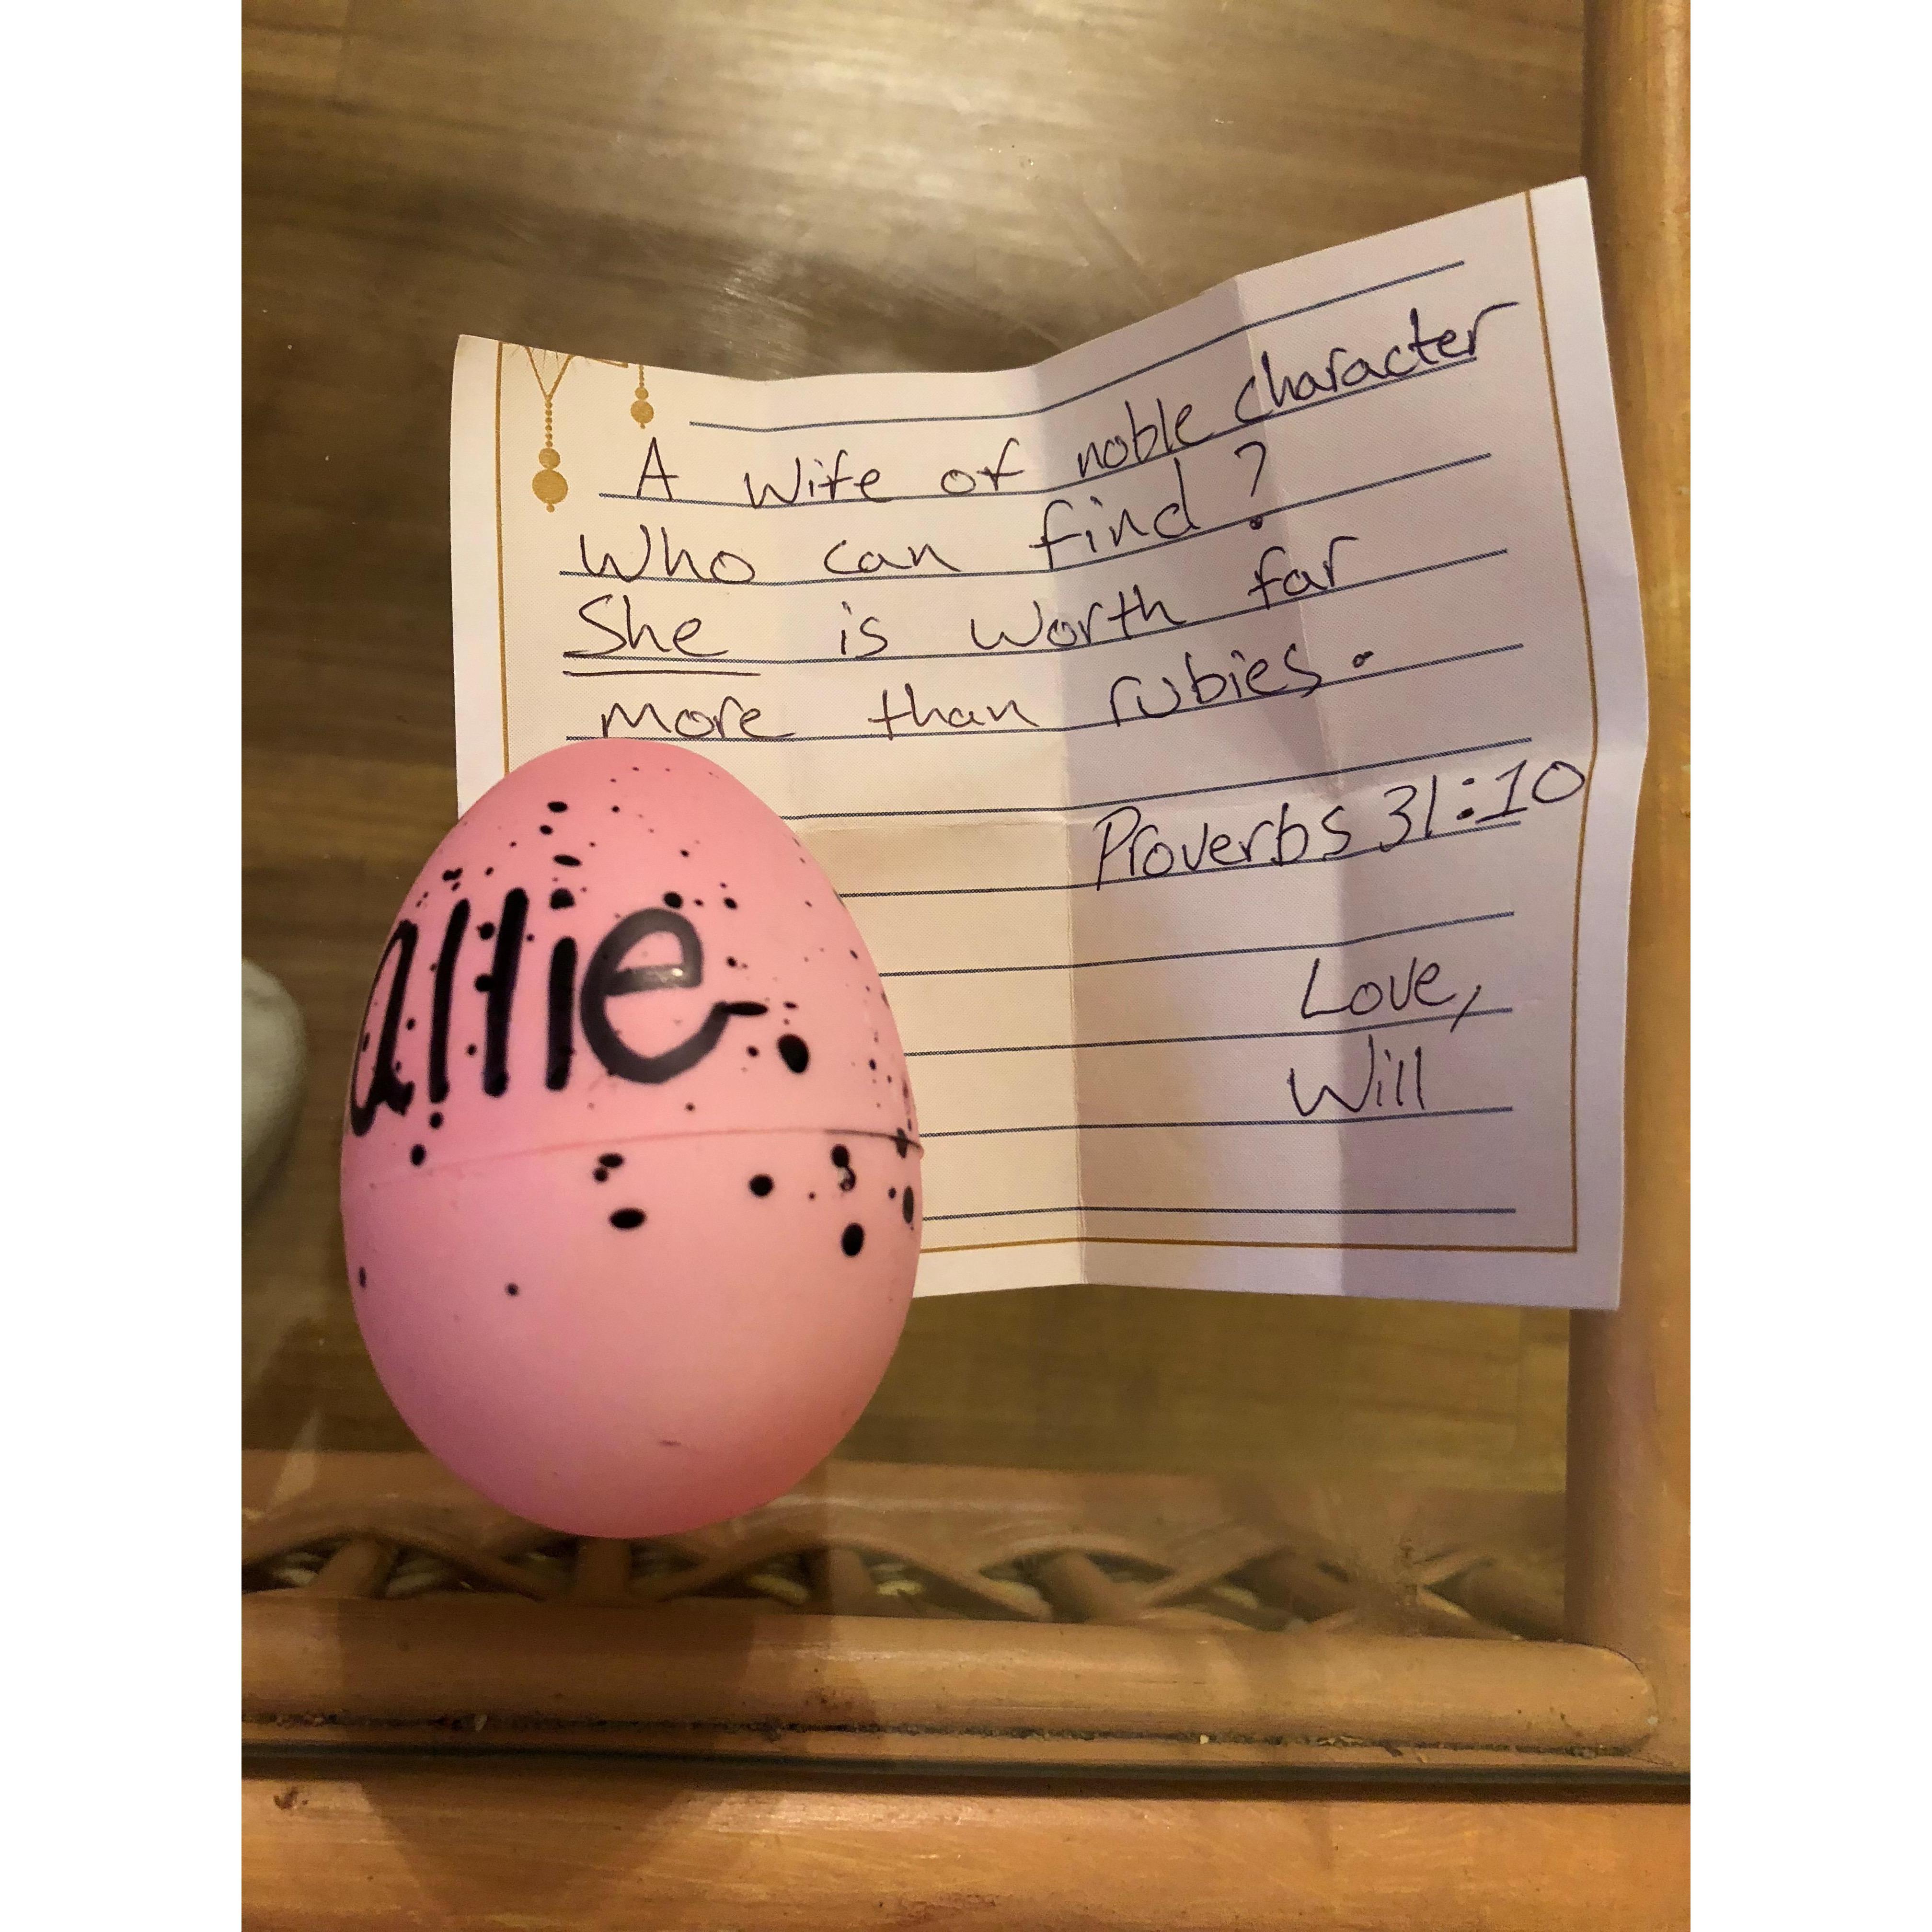 A wife of noble character
Who can find?
She is worth far
more than rubies.
Proverbs 31:10
Love,
Will
allie